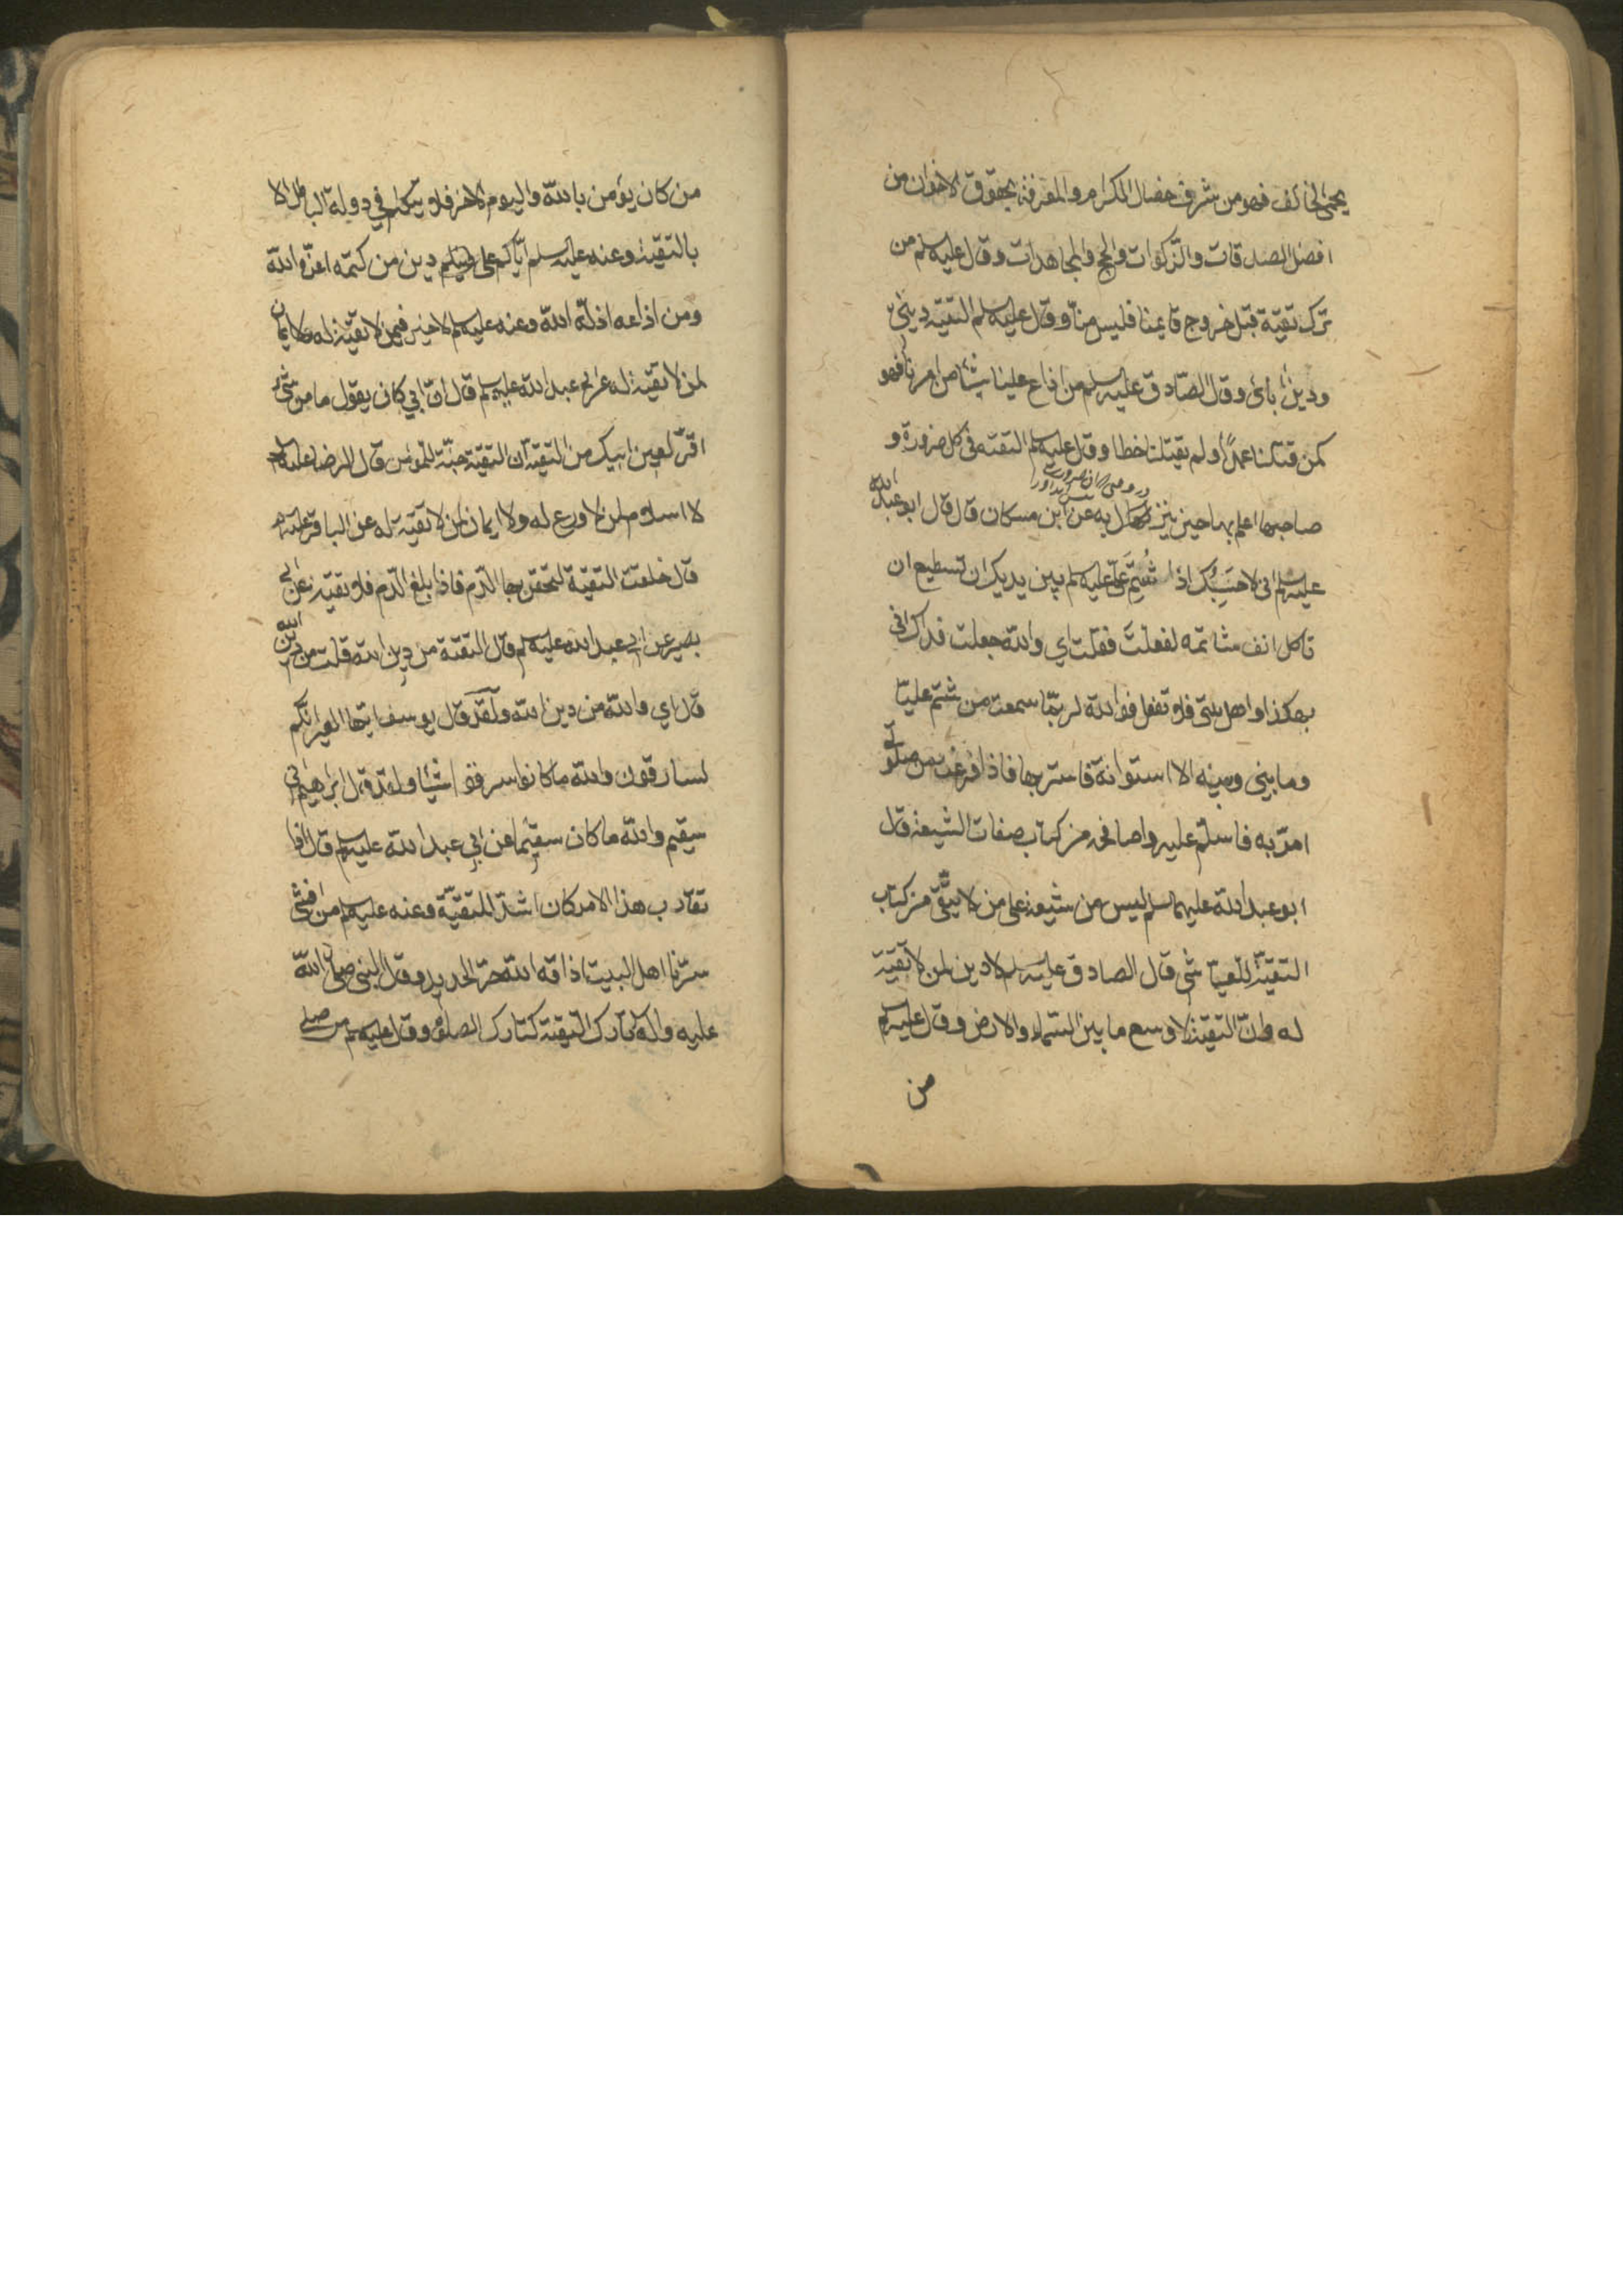 يحمى الخائف فهو من شرف خصال الكرام والمعرفة بحقوق الاخوان من
افضل الصدقات والزكوات والحج والمجاهدات وقال عليه سلم من
ترك تقية قبل خروج قايمنا فليس منّا وقال عليه سلم التقيه دينى
ودين ابائى وقال الصّادق عليه سلم من اذاع علينا شيئا من امرنا فهو
كمن قتلنا عمداً ولم يقتلنا خطا وقال عليه سلم التقيه فى كل ضرورة و
صاحبها اعلم بها حين ينزل به عن ابن مسكان قال قال ابو عبد الله
عليه سلم انى لاحسبك اذا شُتِمَ علىّ عليه سلم بين يديك ان تسطيع ان
تاكل انف شاتمه لفعلتَ فقلت اي والله جعلت فداك انى
بهكذا واهل بيتى فلا تفعل فوالله لربّما سمعت من شتم عليّا
وما بينى وبينه الا استوانة فاستر بها فاذا فرغت من صلوتى
امرّ به فاسلّم عليه واصافحه من كتاب صفات الشيعة قال
ابو عبد الله عليه سلم ليس من شيعة على من لا يتّقى من كتاب
التقيّة للعياشى قال الصادق عليه سلم لا دين لمن لا تقيّة
له وانّ التقيّة لاوسع ما بين السّماء والارض وقال عليه سلم
من
من كان يؤمن بالله واليوم الاخر فلا يتكلم في دولة الباطل الا
بالتقيّة وعنه عليه سلم ايّاكم على دين من كتمه اعزّه الله
ومن اذاعه اذلّه الله وعنه عليه سلم لا خير فيمن لا تقيّة له ولا ايمان
لمن لا تقيّة له عن ابى عبد الله عليه سلم قال انّ ابي كان يقول ما من شئ
اقرّ لعين ابيك من التقيّة ان التقيّة جنّة للمومن قال الرضا عليه سلم
لا اسلام لمن لا ورع له ولا ايمان لمن لا تقيّة له عن الباقر عليه سلم
قال خلقت التقيّة لتحقن بها الدّم فاذا بلغ الدّم فلا تقيّة عن ابى
بصير عن ابى عبد الله عليه سلم قال التقيّة من دين الله قلت من دين الله
قال اي والله من دين الله ولقد قال يوسف ايتها العير انّكم
لسارقون والله ما كانوا سرقوا شيئا ولقد قال ابراهيم انى
سقيم والله ما كان سقيما عن ابي عبد الله عليه سلم قال اذا
تقارب هذا الامر كان اشدّ للتقيّة وعنه عليه سلم من افشى
سرّنا اهل البيت اذاقه الله حرّ الحديد وقال النبى صلى الله
عليه واله تارك التقيّة كتارك الصلوة وقال عليه سلم من صلى